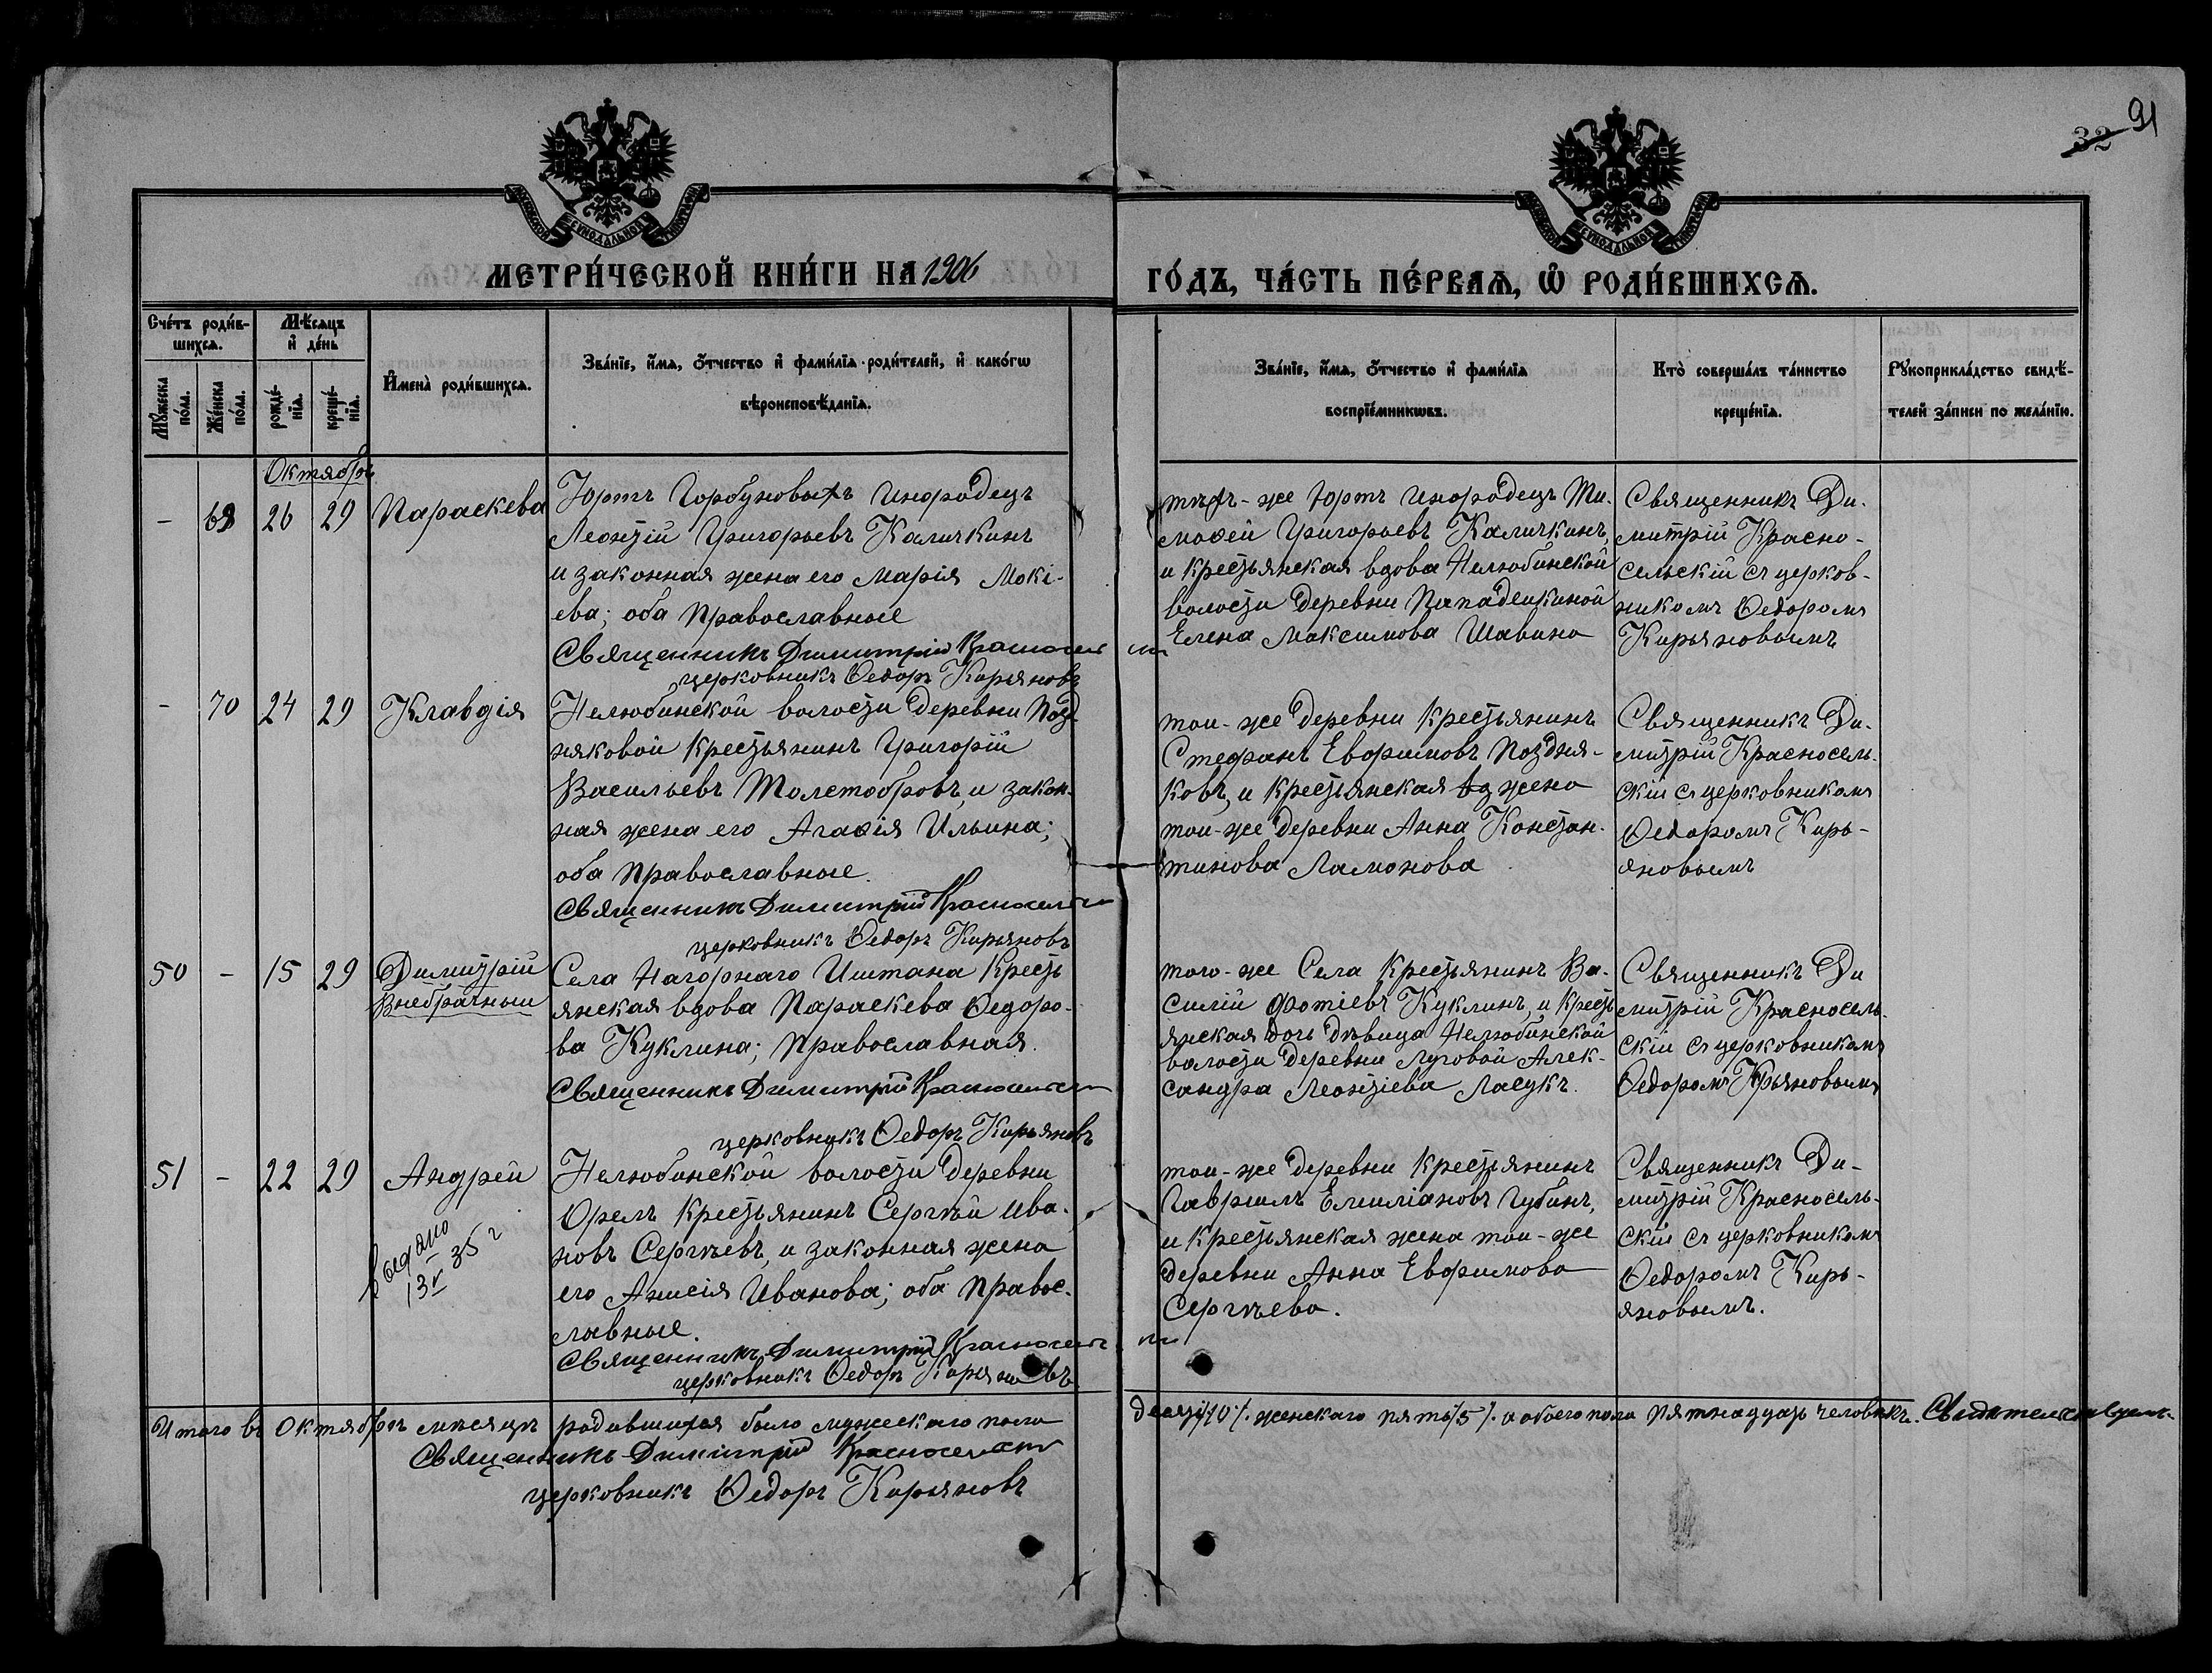 32 91
МЕТРИ́ЧЕСКОЙ КНИ́ГИ НА 1906
ГО́ДЪ, ЧА́СТЬ ПЕ́РВАѦ, Ѡ҆ РОДИ́ВШИХСѦ.
Сче́тъ роди́в-
шихсѧ.
Мꙋ́жеска по́ла.
Же́нска по́ла.
Мѣ́сѧцъ
и҆ де́нь
рожде́-
нїѧ.
креще́-
нїѧ.
И҆мена̀ роди́вшихсѧ.
Зва́нїе, и҆́мѧ, ѻ҆́тчество и҆ фами́лїѧ роди́телей, и҆ како́гѡ
вѣроисповѣ́данїѧ.
Зва́нїе, и҆́мѧ, ѻ҆́тчество и҆ фами́лїѧ
воспрїе́мникѡвъ.
Кто̀ соверша́лъ та́инство
креще́нїѧ.
Рꙋкоприкла́дство свидѣ́-
телей за́писи по жела́нїю.
Октябрь
- 69 26 29 Параскева
Юртъ Горбуновыхъ инородецъ
Леонтій Григорьевъ Каличкинъ
и законная жена его Марія Мокі-
ева; оба православные
Священникъ Димитрій Красносель
церковникъ Ѳедоръ Кирьяновъ
тѣхъ-же Юртъ инородецъ Ти-
моѳей Григорьевъ Каличкинъ,
и крестьянская вдова Нелюбинской
волости деревни Пападейкиной
Елена Максимова Шавина
Священникъ Ди-
митрій Красно-
сельскій съ церков-
никомъ Ѳедоромъ
Кирьяновымъ
- 70 24 29 Клавдія
Нелюбинской волости деревни Позд-
няковой крестьянинъ Григорій
Васильевъ Толстобровъ, и закон-
ная жена его Агаѳія Ильина;
оба православные.
Священникъ Димитрій Красносельскій
церковникъ Ѳедоръ Кирьяновъ
той-же деревни крестьянинъ
Стефанъ Евфимовъ Поздня-
ковъ, и крестьянская жена
той-же деревни Анна Констан-
тинова Ламонова
Священникъ Ди-
митрій Красносель-
скій съ церковникомъ
Ѳедоромъ Кирь-
яновымъ
50 - 15 29 Димитрій
Внебрачный
Села Нагорнаго Иштана кресть
янская вдова Параскева Ѳедоро-
ва Куклина; православная.
Священникъ Димитрій Красносельскій
церковникъ Ѳедоръ Кирьяновъ
того-же Села крестьянинъ Ва-
силій Фотіевъ Куклинъ, и кресть
янская дочь дѣвица Нелюбинской
волости деревни Луговой Алек-
сандра Леонтіева Ласукъ.
Священникъ Ди
митрій Красносель-
скій съ церковникомъ
Ѳедоромъ Кірьяновымъ
51 - 22 29 Андрей
выдано
13 V 35 г
Нелюбинской волости деревни
Орелъ крестьянинъ Сергѣй Ива-
новъ Сергѣевъ, и законная жена
его Анисія Иванова; оба правос-
лавные.
Священникъ Димитрій Красносель
церковникъ Ѳедоръ Кирьяновъ
той-же деревни крестьянинъ
Гавріилъ Емиліановъ Губинъ,
и крестьянская жена той-же
деревни Анна Евфимова
Сергѣева.
Священникъ Ди-
митрій Красносель-
скій съ церковникомъ
Ѳедоромъ Кирь-
яновымъ.
Итого въ Октябрѣ мѣсяцѣ родившихся было мужескаго пола десять /10/. женскаго пять /5/. а обоего пола пятнадцать человѣкъ.
Священникъ Димитрій Красносельскій
церковникъ Ѳедоръ Кирьяновъ